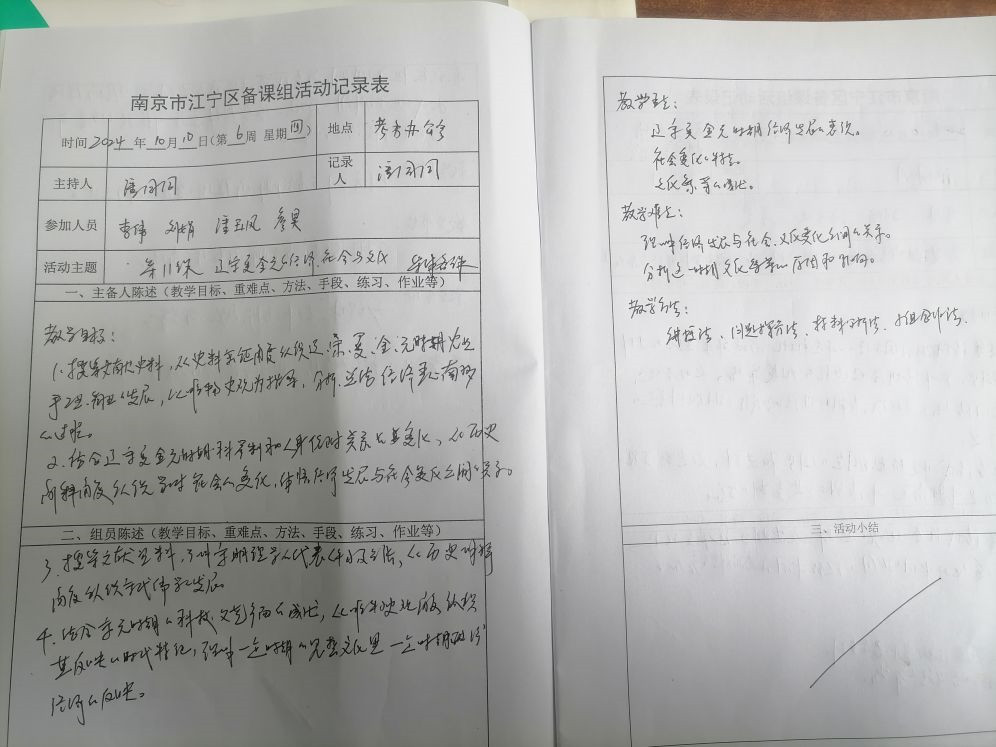 南京市江宁区备课组活动记录表
时间 2024 年 10 月 10 日(第 6 周 星期 四) 地点 办公室
主持人 记录人
参加人员 李伟
活动主题 第11课 辽宋夏金元的经济、社会与文化
一、主备人陈述(教学目标、重难点、方法、手段、练习、作业等)
教学目标:
1. 搜集文献史料,从史料实证角度认识辽、宋、夏、金、元时期农业
手工业、商业的发展,以唯物史观为指导,分析、总结经济重心南移
的过程。
2. 结合辽宋夏金元时期科举制和人身依附关系的变化,从历史
解释角度认识当时社会的变化,体悟经济发展与社会变化之间的关系。
二、组员陈述(教学目标、重难点、方法、手段、练习、作业等)
3. 搜集文献资料,了解宋明理学的代表人物及主张,从历史解释
角度认识宋代儒学发展
4. 结合宋元时期的科技、文艺方面的成就,从唯物史观角度认识
其反映的时代特征,理解一定时期的思想文化是一定时期政治
经济的反映。
教学重点:
辽宋夏金元时期经济发展的表现。
社会变化的特点。
文化繁荣的成就。
教学难点:
理解经济发展与社会、文化变化之间的关系。
分析这一时期文化繁荣的原因和影响。
教学方法:
讲授法、问题探究法、材料分析法、小组合作法、
三、活动小结